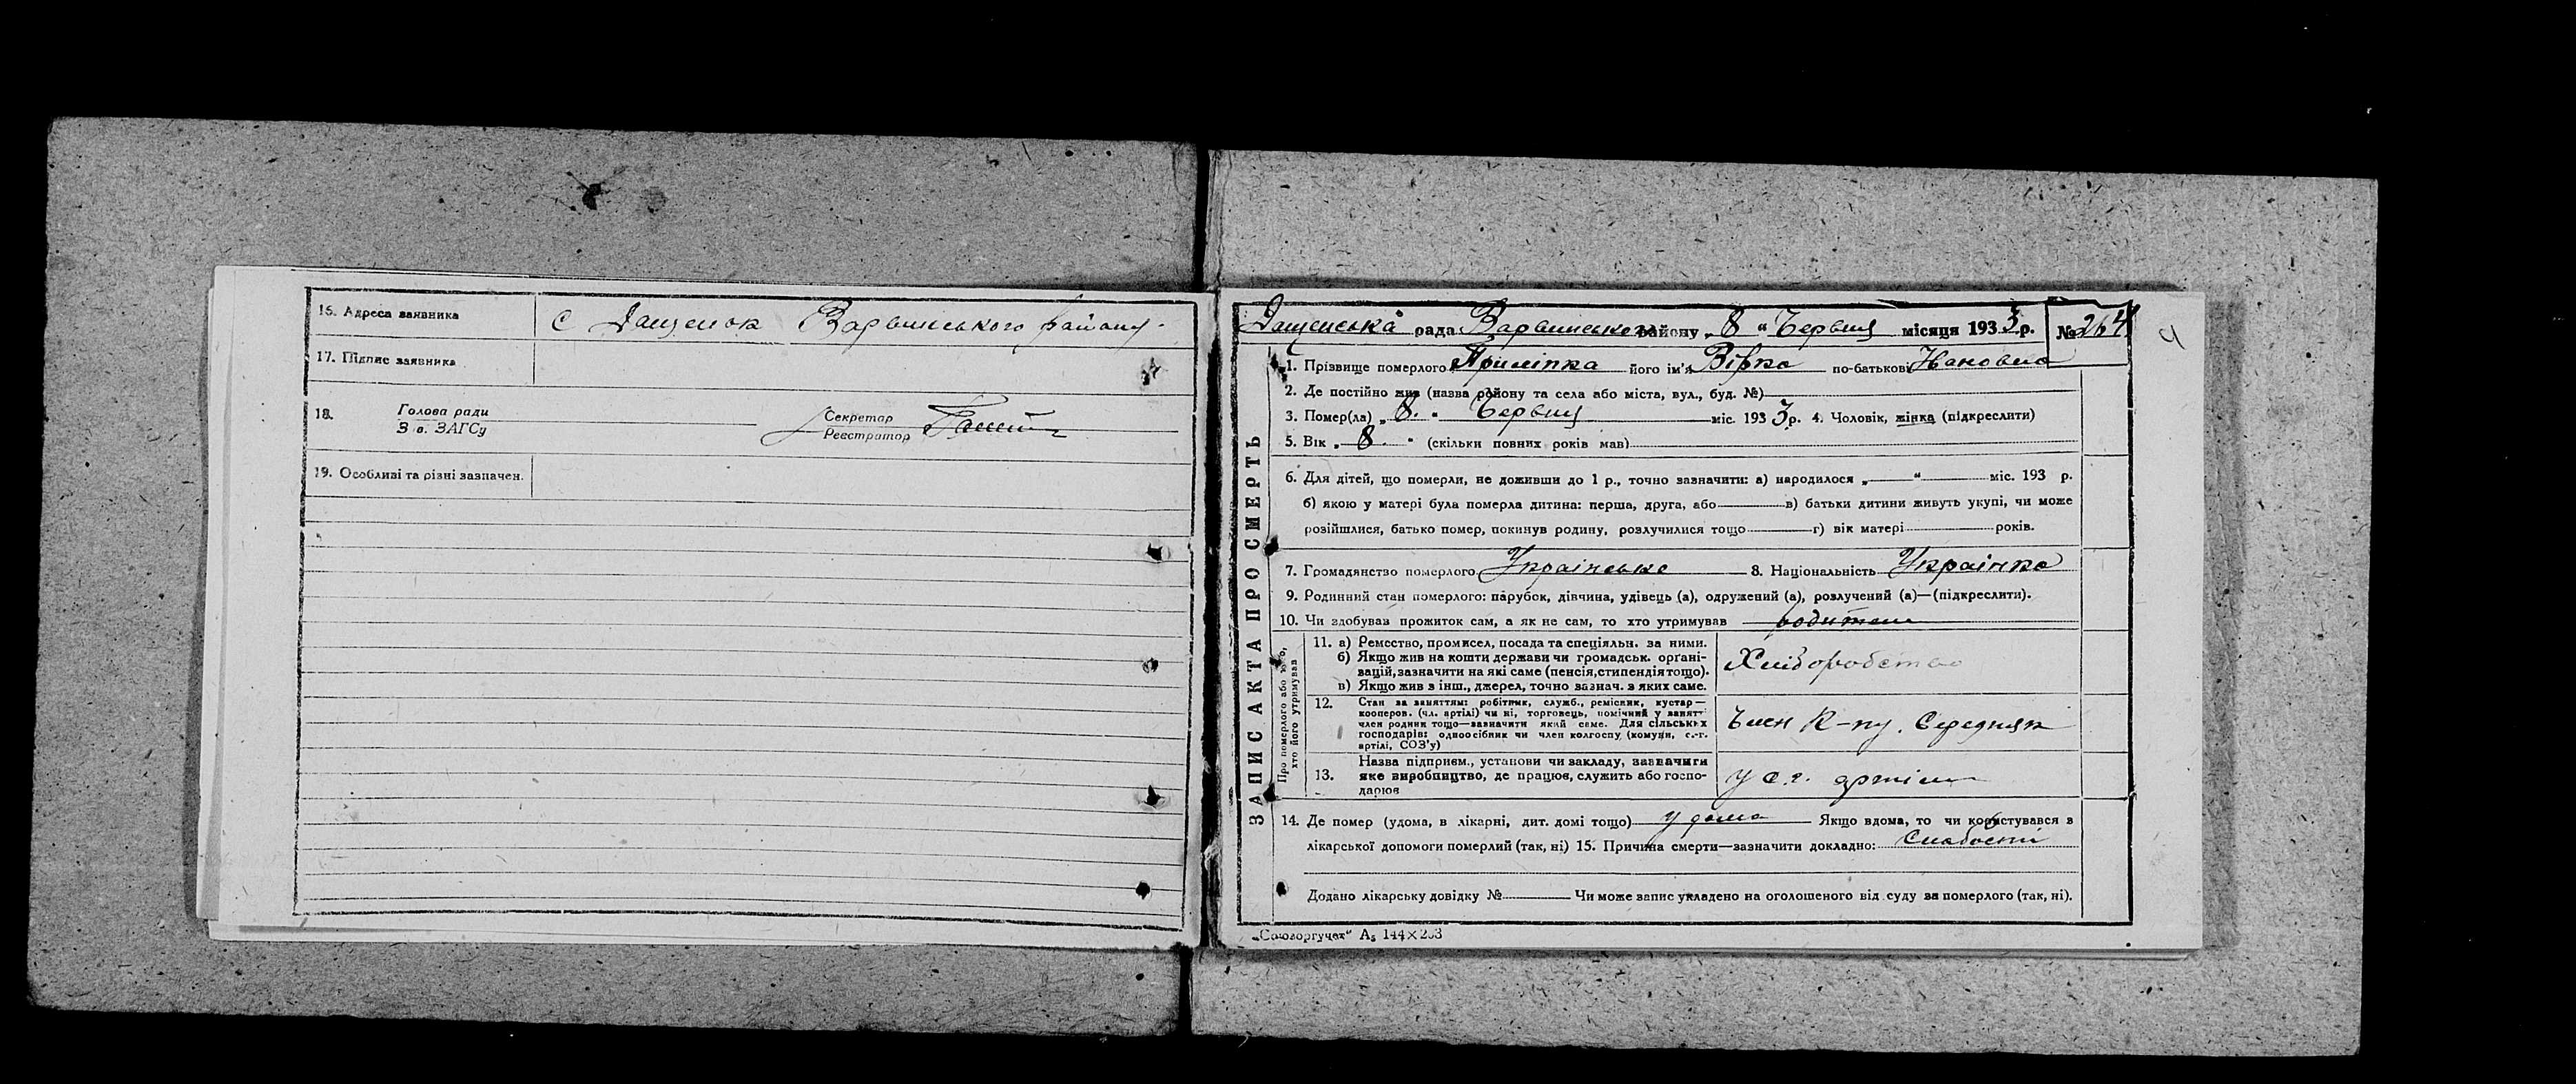 16. Адреса заявника с Дащенок Варвинського району.
17. Підпис заявника
18. Голова ради
Зв. ЗАГСу
Секретар
Реєстратор
19. Особливі та різні зазначен.
Дащенська рада Варвинського району „8“ Червця місяця 1933 р. № 264
1. Прізвище померлого Приліпка його ім'я Вірка по-батькові Івановна
2. Де постійно жив (назва району та села або міста, вул., буд. №)
3. Помер(ла) „8.“ Червця міс. 1933 р. 4. Чоловік, жінка (підкреслити)
5. Вік „8.“ (скільки повних років мав)
6. Для дітей, що померли, не доживши до 1 р., точно зазначити: а) народилося „ “ міс. 193 р.
б) якою у матері була померла дитина: перша, друга, або в) батьки дитини живуть укупі, чи може
розійшлися, батько помер, покинув родину, розлучилися тощо г) вік матері років.
7. Громадянство померлого Українське 8. Національність Українка
9. Родинний стан померлого: парубок, дівчина, удівець (а), одружений (а), розлучений (а)—(підкреслити).
10. Чи здобував прожиток сам, а як не сам, то хто утримував родители
ЗАПИС АКТА ПРО СМЕРТЬ
Про померлого або того, хто його утримував
11. а) Ремество, промисел, посада та спеціяльн. за ними.
б) Якщо жив на кошти держави чи громадськ. органі-
зацій, зазначити на які саме (пенсія, стипендія тощо).
в) Якщо жив з інш., джерел, точно зазнач. з яких саме.
Хліборобство
12. Стан за заняттям: робітник, служб., ремісник, кустар—
кооперов. (чл. артілі) чи ні, торговець, помічний у занятт-
член родини тощо—зазначити який саме. Для сільських
господарів: одноосібник чи член колгоспу (комуни, с.-г.
артілі, СОЗ'у)
Член К-пу. Середняк
13. Назва підприєм., установи чи закладу, зазначити
яке виробництво, де працює, служить або госпо-
дарює
у с.г. артіли
14. Де помер (удома, в лікарні, дит. домі тощо) у дома Якщо вдома, то чи користувався з
лікарської допомоги померлий (так, ні) 15. Причина смерти—зазначити докладно: Слабости
Додано лікарську довідку № Чи може запис укладено на оголошеного від суду за померлого (так, ні).
„Союзоргучет“ А₅ 144×203